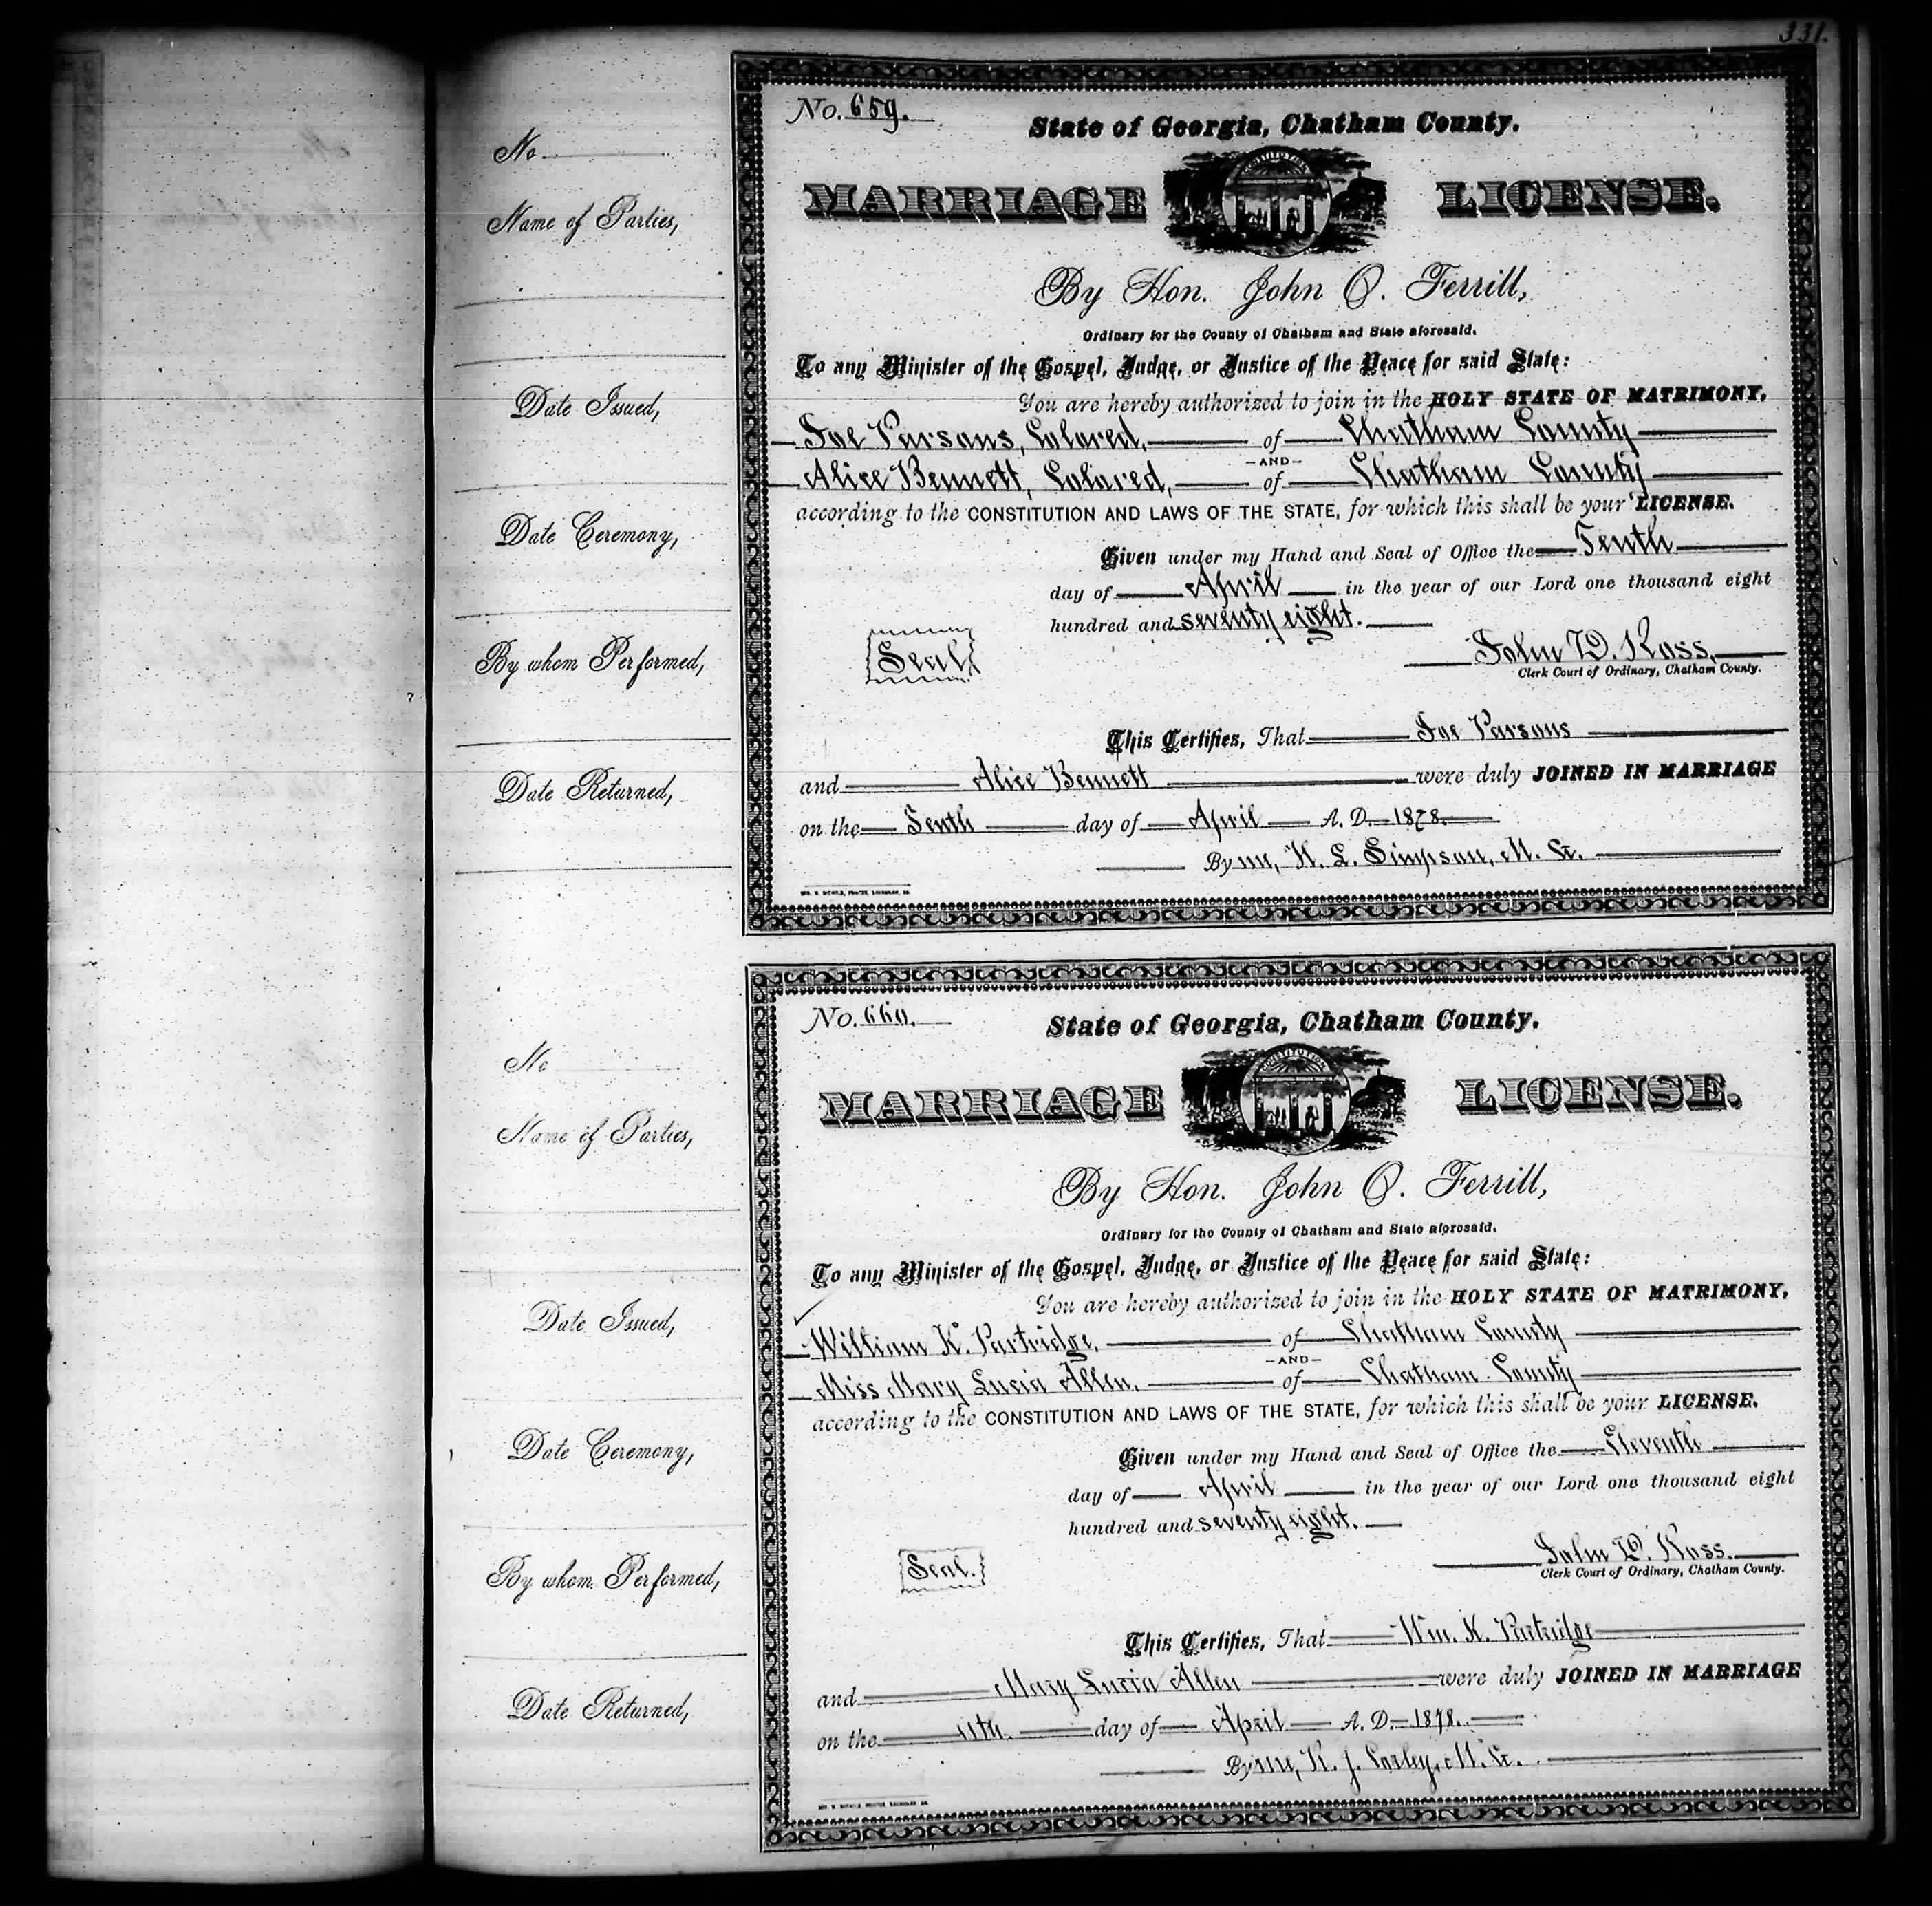 331.
No.
Name of Parties,
Date Issued,
Date Ceremony,
By whom Performed,
Date Returned,
No. 659.
State of Georgia, Chatham County.
MARRIAGE LICENSE.
By Hon. John O. Ferrill,
Ordinary for the County of Chatham and State aforesaid.
To any Minister of the Gospel, Judge, or Justice of the Peace for said State:
You are hereby authorized to join in the HOLY STATE OF MATRIMONY,
Joe Parsons, Colored, of Chatham County
AND
Alice Bennett, Colored, of Chatham County
according to the CONSTITUTION AND LAWS OF THE STATE, for which this shall be your LICENSE.
Given under my Hand and Seal of Office the Tenth
day of April in the year of our Lord one thousand eight
hundred and seventy eight.
Seal
John D. Ross,
Clerk Court of Ordinary, Chatham County.
This Certifies, That Joe Parsons
and Alice Bennett were duly JOINED IN MARRIAGE
on the Tenth day of April A. D. 1878.
By me, H. L. Simpson, M. G.
No
Name of Parties,
Date Issued,
Date Ceremony,
By whom Performed,
Date Returned,
No. 660.
State of Georgia, Chatham County.
CONSTITUTION
MARRIAGE LICENSE.
By Hon. John O. Ferrill,
Ordinary for the County of Chatham and State aforesaid.
To any Minister of the Gospel, Judge, or Justice of the Peace for said State:
You are hereby authorized to join in the HOLY STATE OF MATRIMONY,
William K. Partridge, of Chatham County
AND
Miss Mary Lucia Allen, of Chatham County
according to the CONSTITUTION AND LAWS OF THE STATE, for which this shall be your LICENSE.
Given under my Hand and Seal of Office the Eleventh
day of April in the year of our Lord one thousand eight
hundred and seventy eight.
Seal.
John D. Ross.
Clerk Court of Ordinary, Chatham County.
This Certifies, That Wm. K. Partridge
and Mary Lucia Allen were duly JOINED IN MARRIAGE
on the 11th. day of April A. D. 1878.
By me, R. J. Corley, M. G.